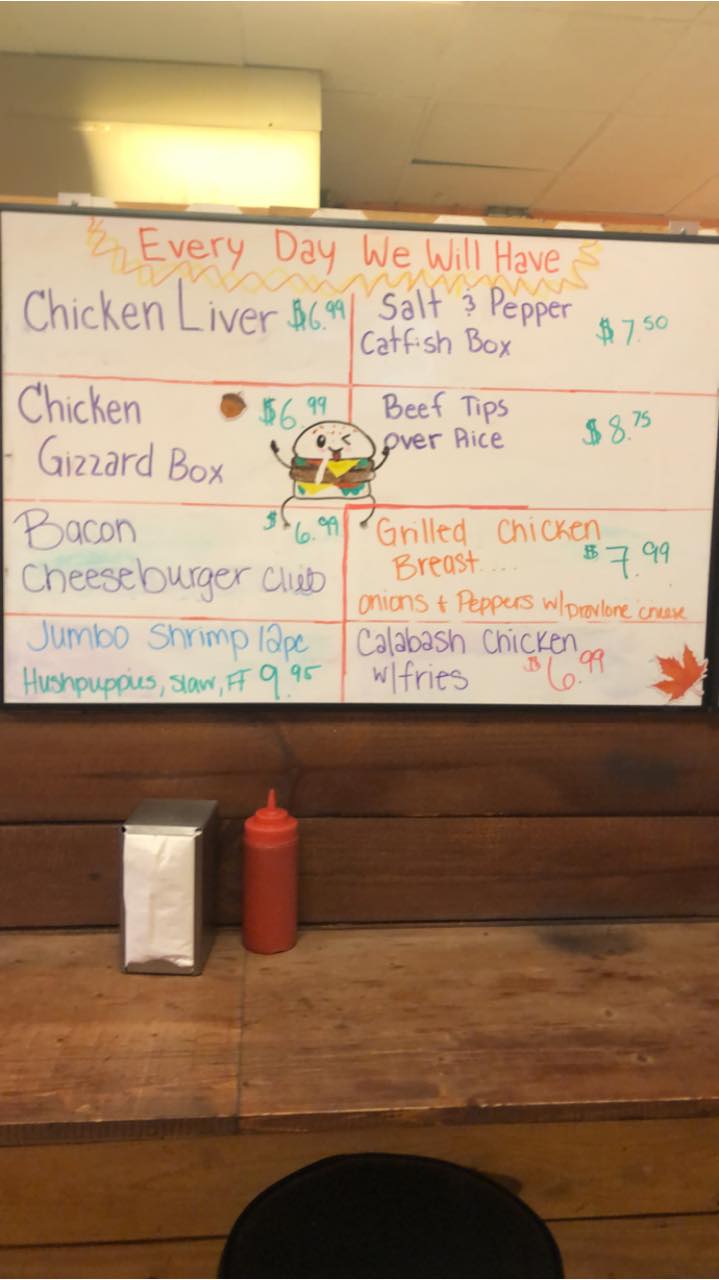 Every Day We Will Have
Chicken Liver $6.99
Salt & Pepper
Catfish Box $7.50
Chicken $6.99
Gizzard Box
Beef Tips
over Rice $8.75
Bacon $6.99
Cheeseburger Club
Grilled Chicken
Breast.... $7.99
onions + Peppers w/Provlone cheese
Jumbo Shrimp 12pc
Hushpuppies, Slaw, FF 9.95
Calabash Chicken
w/fries $6.99